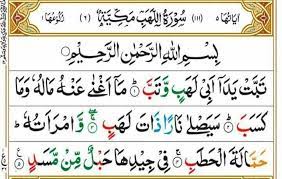 اٰيَاتُهَا ٥ (١١١) سُوْرَةُ اللَّهَبِ مَكِّيَّةٌ (٦) رُكُوْعُهَا ١
بِسْمِ اللّٰهِ الرَّحْمٰنِ الرَّحِيْمِ
تَبَّتْ يَدَآ اَبِيْ لَهَبٍ وَّتَبَّ ۝ مَآ اَغْنٰى عَنْهُ مَالُهٗ وَمَا
كَسَبَ ۝ سَيَصْلٰى نَارًا ذَاتَ لَهَبٍ ۝ وَّامْرَاَتُهٗ
حَمَّالَةَ الْحَطَبِ ۝ فِيْ جِيْدِهَا حَبْلٌ مِّنْ مَّسَدٍ ۝